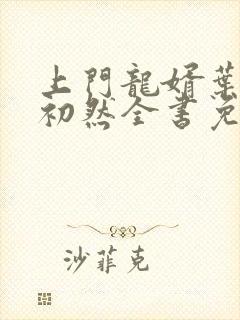 上門龍婿葉
初然全書免
沙菲克